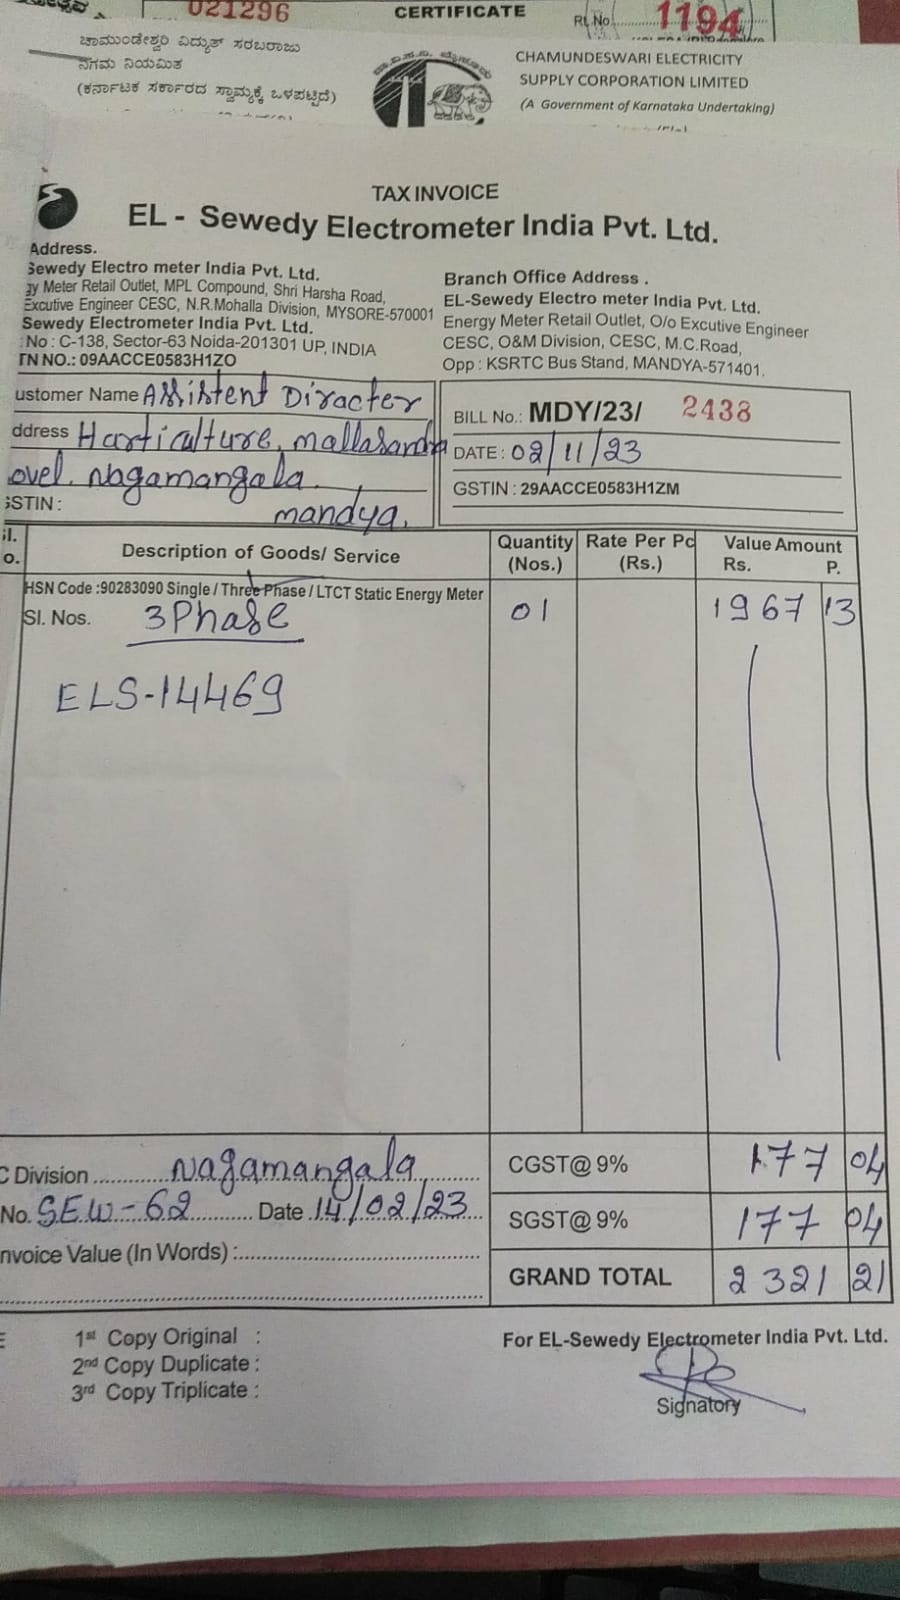 021296
CERTIFICATE
Rt. No.
1194
ಚಾಮುಂಡೇಶ್ವರಿ ವಿದ್ಯುತ್ ಸರಬರಾಜು
ನಿಗಮ ನಿಯಮಿತ
(ಕರ್ನಾಟಕ ಸರ್ಕಾರದ ಸ್ವಾಮ್ಯಕ್ಕೆ ಒಳಪಟ್ಟಿದೆ)
CHAMUNDESWARI ELECTRICITY
SUPPLY CORPORATION LIMITED
(A Government of Karnataka Undertaking)
TAX INVOICE
EL - Sewedy Electrometer India Pvt. Ltd.
Address.
Sewedy Electro meter India Pvt. Ltd.
gy Meter Retail Outlet, MPL Compound, Shri Harsha Road,
Excutive Engineer CESC, N.R.Mohalla Division, MYSORE-570001
Sewedy Electrometer India Pvt. Ltd.
No : C-138, Sector-63 Noida-201301 UP, INDIA
TN NO.: 09AACCE0583H1ZO
Branch Office Address .
EL-Sewedy Electro meter India Pvt. Ltd.
Energy Meter Retail Outlet, O/o Excutive Engineer
CESC, O&M Division, CESC, M.C.Road,
Opp : KSRTC Bus Stand, MANDYA-571401.
ustomer Name Assistent Diracter
ddress Horticulture, mallasandra
ovel. Nagamangala.
GSTIN : mandya.
BILL No.: MDY/23/ 2438
DATE : 02/11/23
GSTIN : 29AACCE0583H1ZM
Sl. o. Description of Goods/ Service Quantity (Nos.) Rate Per Pc (Rs.) Value Amount Rs. P.
HSN Code :90283090 Single / Three Phase / LTCT Static Energy Meter
Sl. Nos. 3 Phase 01 1967 13
ELS-14469
C Division nagamangala CGST@ 9% 177 04
No. SEW-62 Date 14/02/23 SGST@ 9% 177 04
nvoice Value (In Words) : GRAND TOTAL 2321 21
E 1st Copy Original :
2nd Copy Duplicate :
3rd Copy Triplicate :
For EL-Sewedy Electrometer India Pvt. Ltd.
Signatory